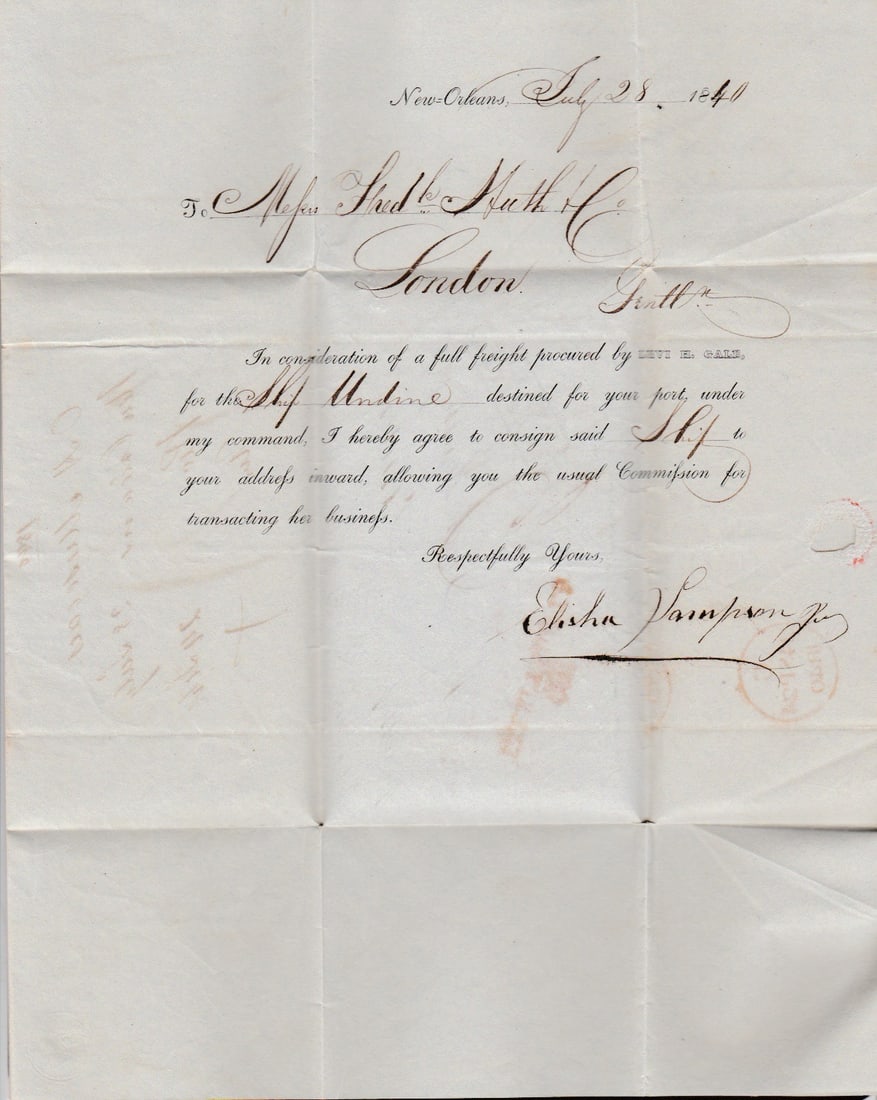 New=Orleans, July 28. 1840
To Messrs Fredk Huth & Co
London.
Gentln
In consideration of a full freight procured by LEVI H. GALE,
for the Ship Undine destined for your port, under
my command, I hereby agree to consign said Ship to
your address inward, allowing you the usual Commission for
transacting her business.
Respectfully Yours,
Elisha Sampson Jur